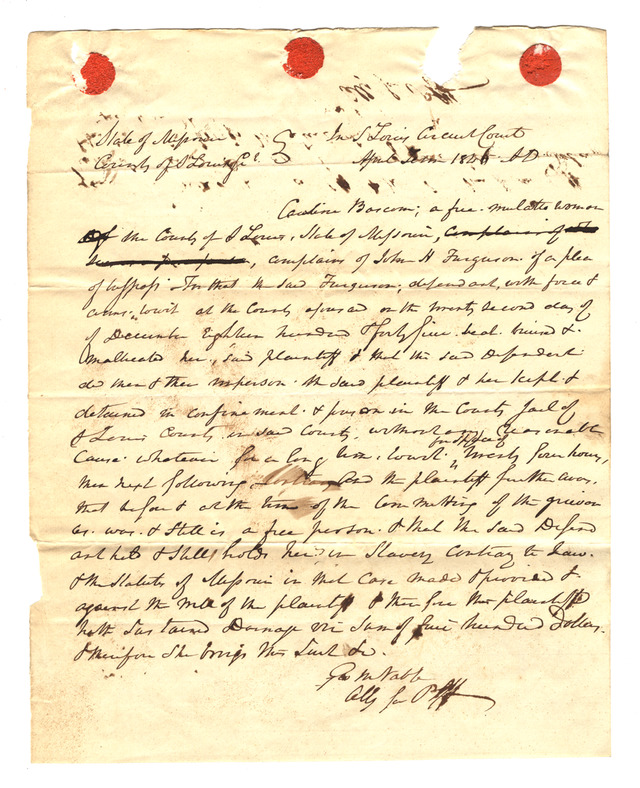 State of Missouri In St Louis Circuit Court
County of St Louis April Term 1846 AD
Caroline Bascom, a free mulatto woman
Of the County of St Louis, State of Missouri, complains of
complains of John H Ferguson of a plea
of trespass. For that the said Ferguson, defendant, with force &
arms, towit at the County aforesaid on the twenty second day of
of December Eighteen hundred & forty five beat bruised &
Maltreated her, said plaintiff & that the said Defendant
did then & there imprison the said plaintiff & her kept &
detained in confinement & prison in the County Jail of
St Louis County in said County, without any reasonable
cause whatever for a long time towit, twenty four hours,
then next following And the plaintiff further avers
that before & at the time of the committing of the grievan
ces was & still is a free person & that the said Defend
ant held & still holds her in Slavery contrary to law
& the Statutes of Missouri in that case made & provided &
against the will of the plaintiff & therefore the plaintiff
hath sustained Damage in sum of five hundred Dollars
& therefore She brings this suit &c
Atty for Plff